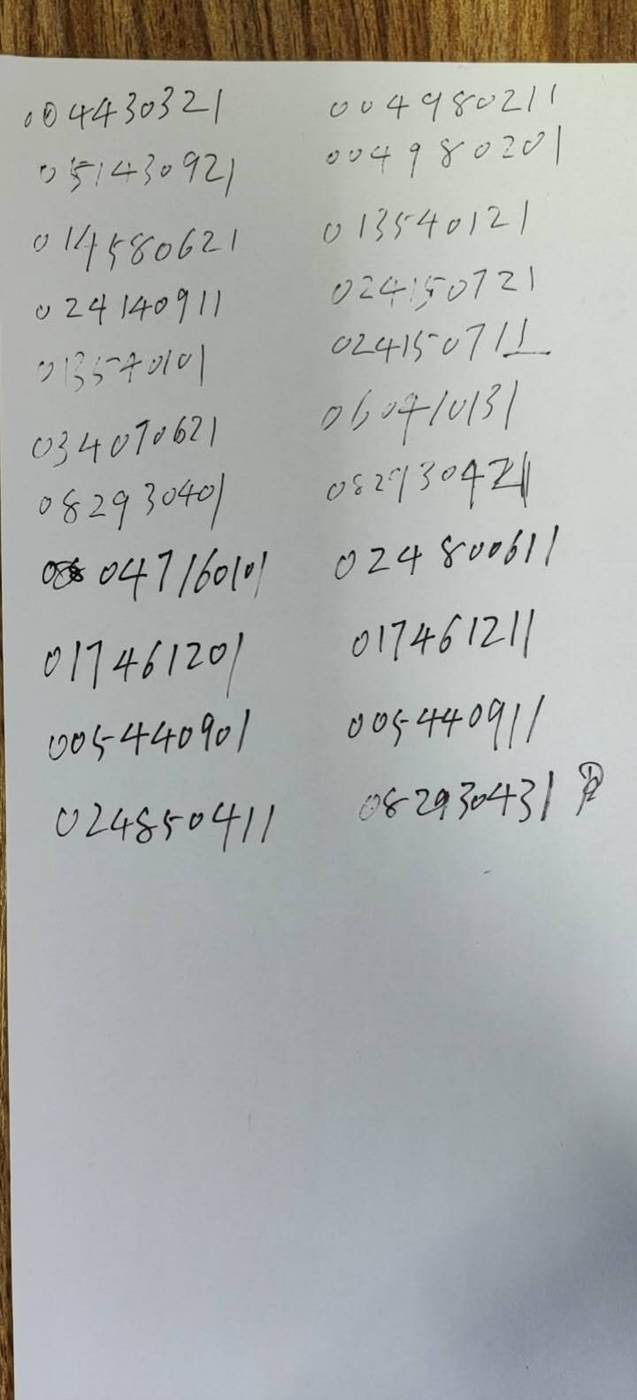 004430321 004980211
051430921 004980201
014580621 013540121
024140911 024150721
013570101 024150711
034070621 060710131
082930401 082930421
047160101 024800611
017461201 017461211
005440901 005440911
024850411 082930431